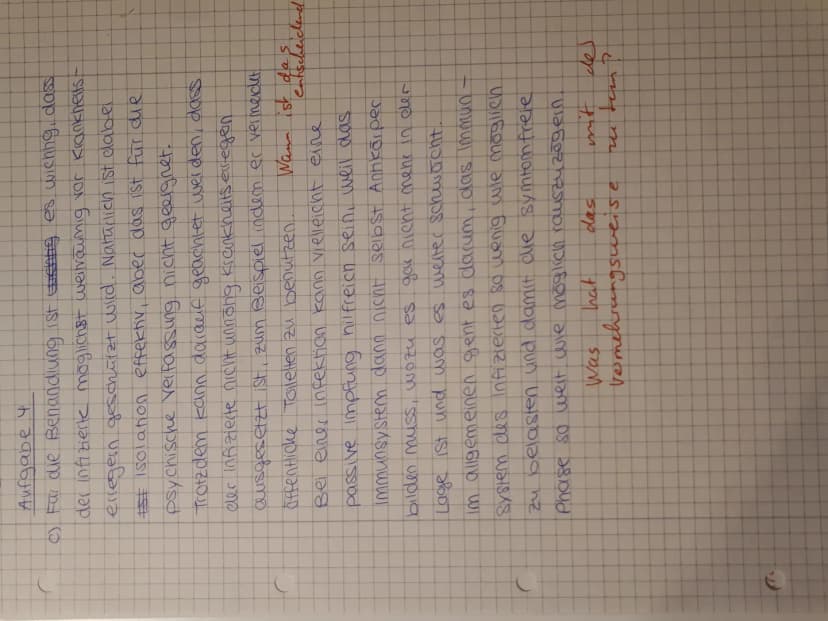 Aufgabe 4
c) Für die Behandlung ist wichtig es wichtig, dass
der infizierte möglichst weiträumig vor Krankheits-
erregern geschützt wird. Natürlich ist dabei
Isolation effektiv, aber das ist für die
psychische Verfassung nicht geeignet.
Trotzdem kann darauf geachtet werden, dass
der infizierte nicht unnötig Krankheitserregern
ausgesetzt ist, zum Beispiel indem er vermeidet
öffentliche Toiletten zu benutzen. Wann ist das
entscheidend
Bei einer Infektion kann vielleicht eine
passive Impfung hilfreich sein, weil das
Immunsystem dann nicht selbst Antikörper
bilden muss, wozu es gar nicht mehr in der
Lage ist und was es weiter schwächt.
Im allgemeinen geht es darum, das Immun-
system des Infizierten so wenig wie möglich
zu belasten und damit die symtomfreie
Phase so weit wie möglich rauszuzögern.
Was hat das mit der
Vermehrungsweise zu tun?